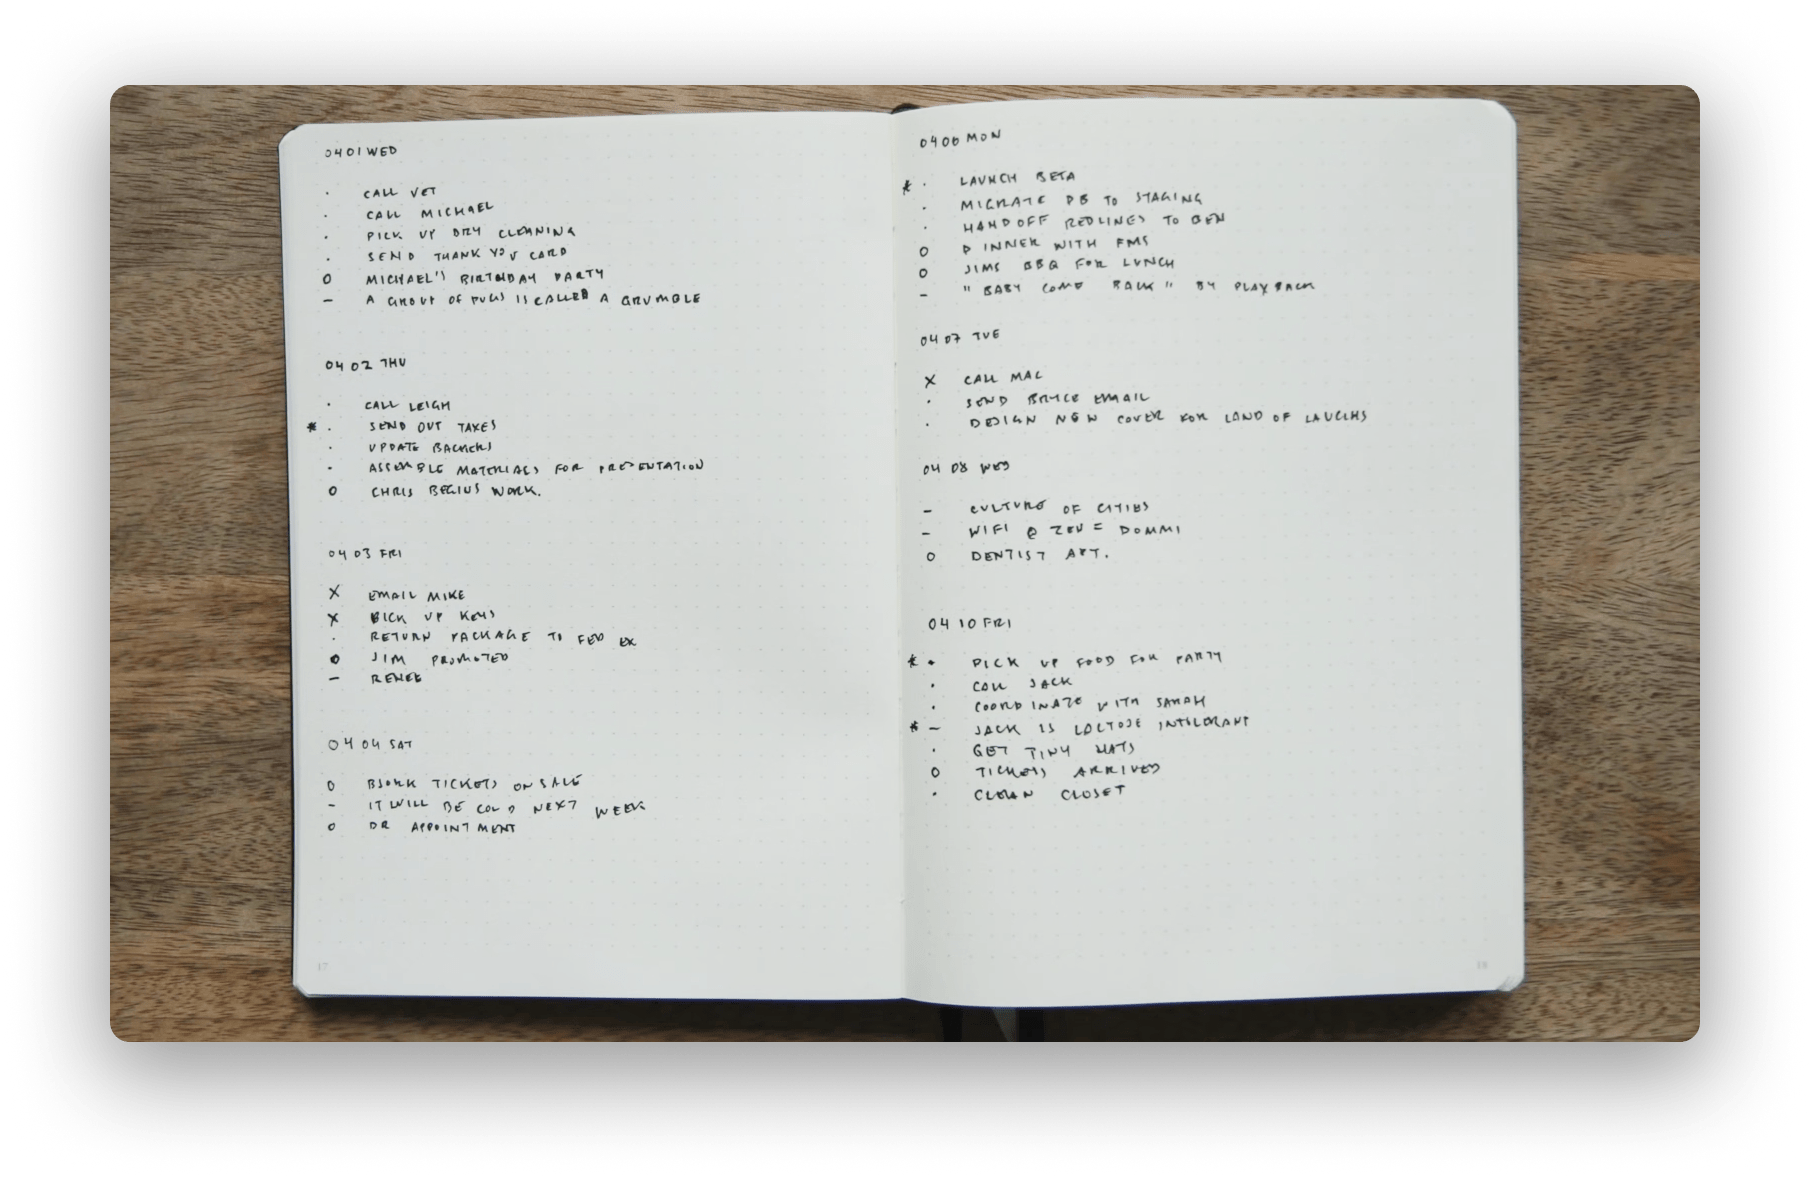 0401 WED
· CALL VET
· CALL MICHAEL
· PICK UP DRY CLEANING
· SEND THANK YOU CARD
O MICHAEL'S BIRTHDAY PARTY
– A GROUP OF PUGS IS CALLED A GRUMBLE
0402 THU
· CALL LEIGH
* · SEND OUT TAXES
· UPDATE BACKERS
· ASSEMBLE MATERIALS FOR PRESENTATION
O CHRIS BEGINS WORK.
0403 FRI
X EMAIL MIKE
X PICK UP KEYS
· RETURN PACKAGE TO FED EX
O JIM PROMOTED
– RENEE
0404 SAT
O BJORK TICKETS ON SALE
– IT WILL BE COLD NEXT WEEK
O DR APPOINTMENT
17
0406 MON
* · LAUNCH BETA
· MIGRATE DB TO STAGING
· HAND OFF REDLINES TO BEN
O DINNER WITH FMS
O JIMS BBQ FOR LUNCH
– "BABY COME BACK" BY PLAYBACK
0407 TUE
X CALL MAC
· SEND BRYCE EMAIL
· DESIGN NEW COVER FOR LAND OF LAUGHS
0408 WED
– CULTURE OF CITIES
– WIFI @ ZEN = DOMMI
O DENTIST APT.
0410 FRI
* · PICK UP FOOD FOR PARTY
· CALL JACK
· COORDINATE WITH SARAH
* – JACK IS LACTOSE INTOLERANT
· GET TINY HATS
O TICKETS ARRIVED
· CLEAN CLOSET
18